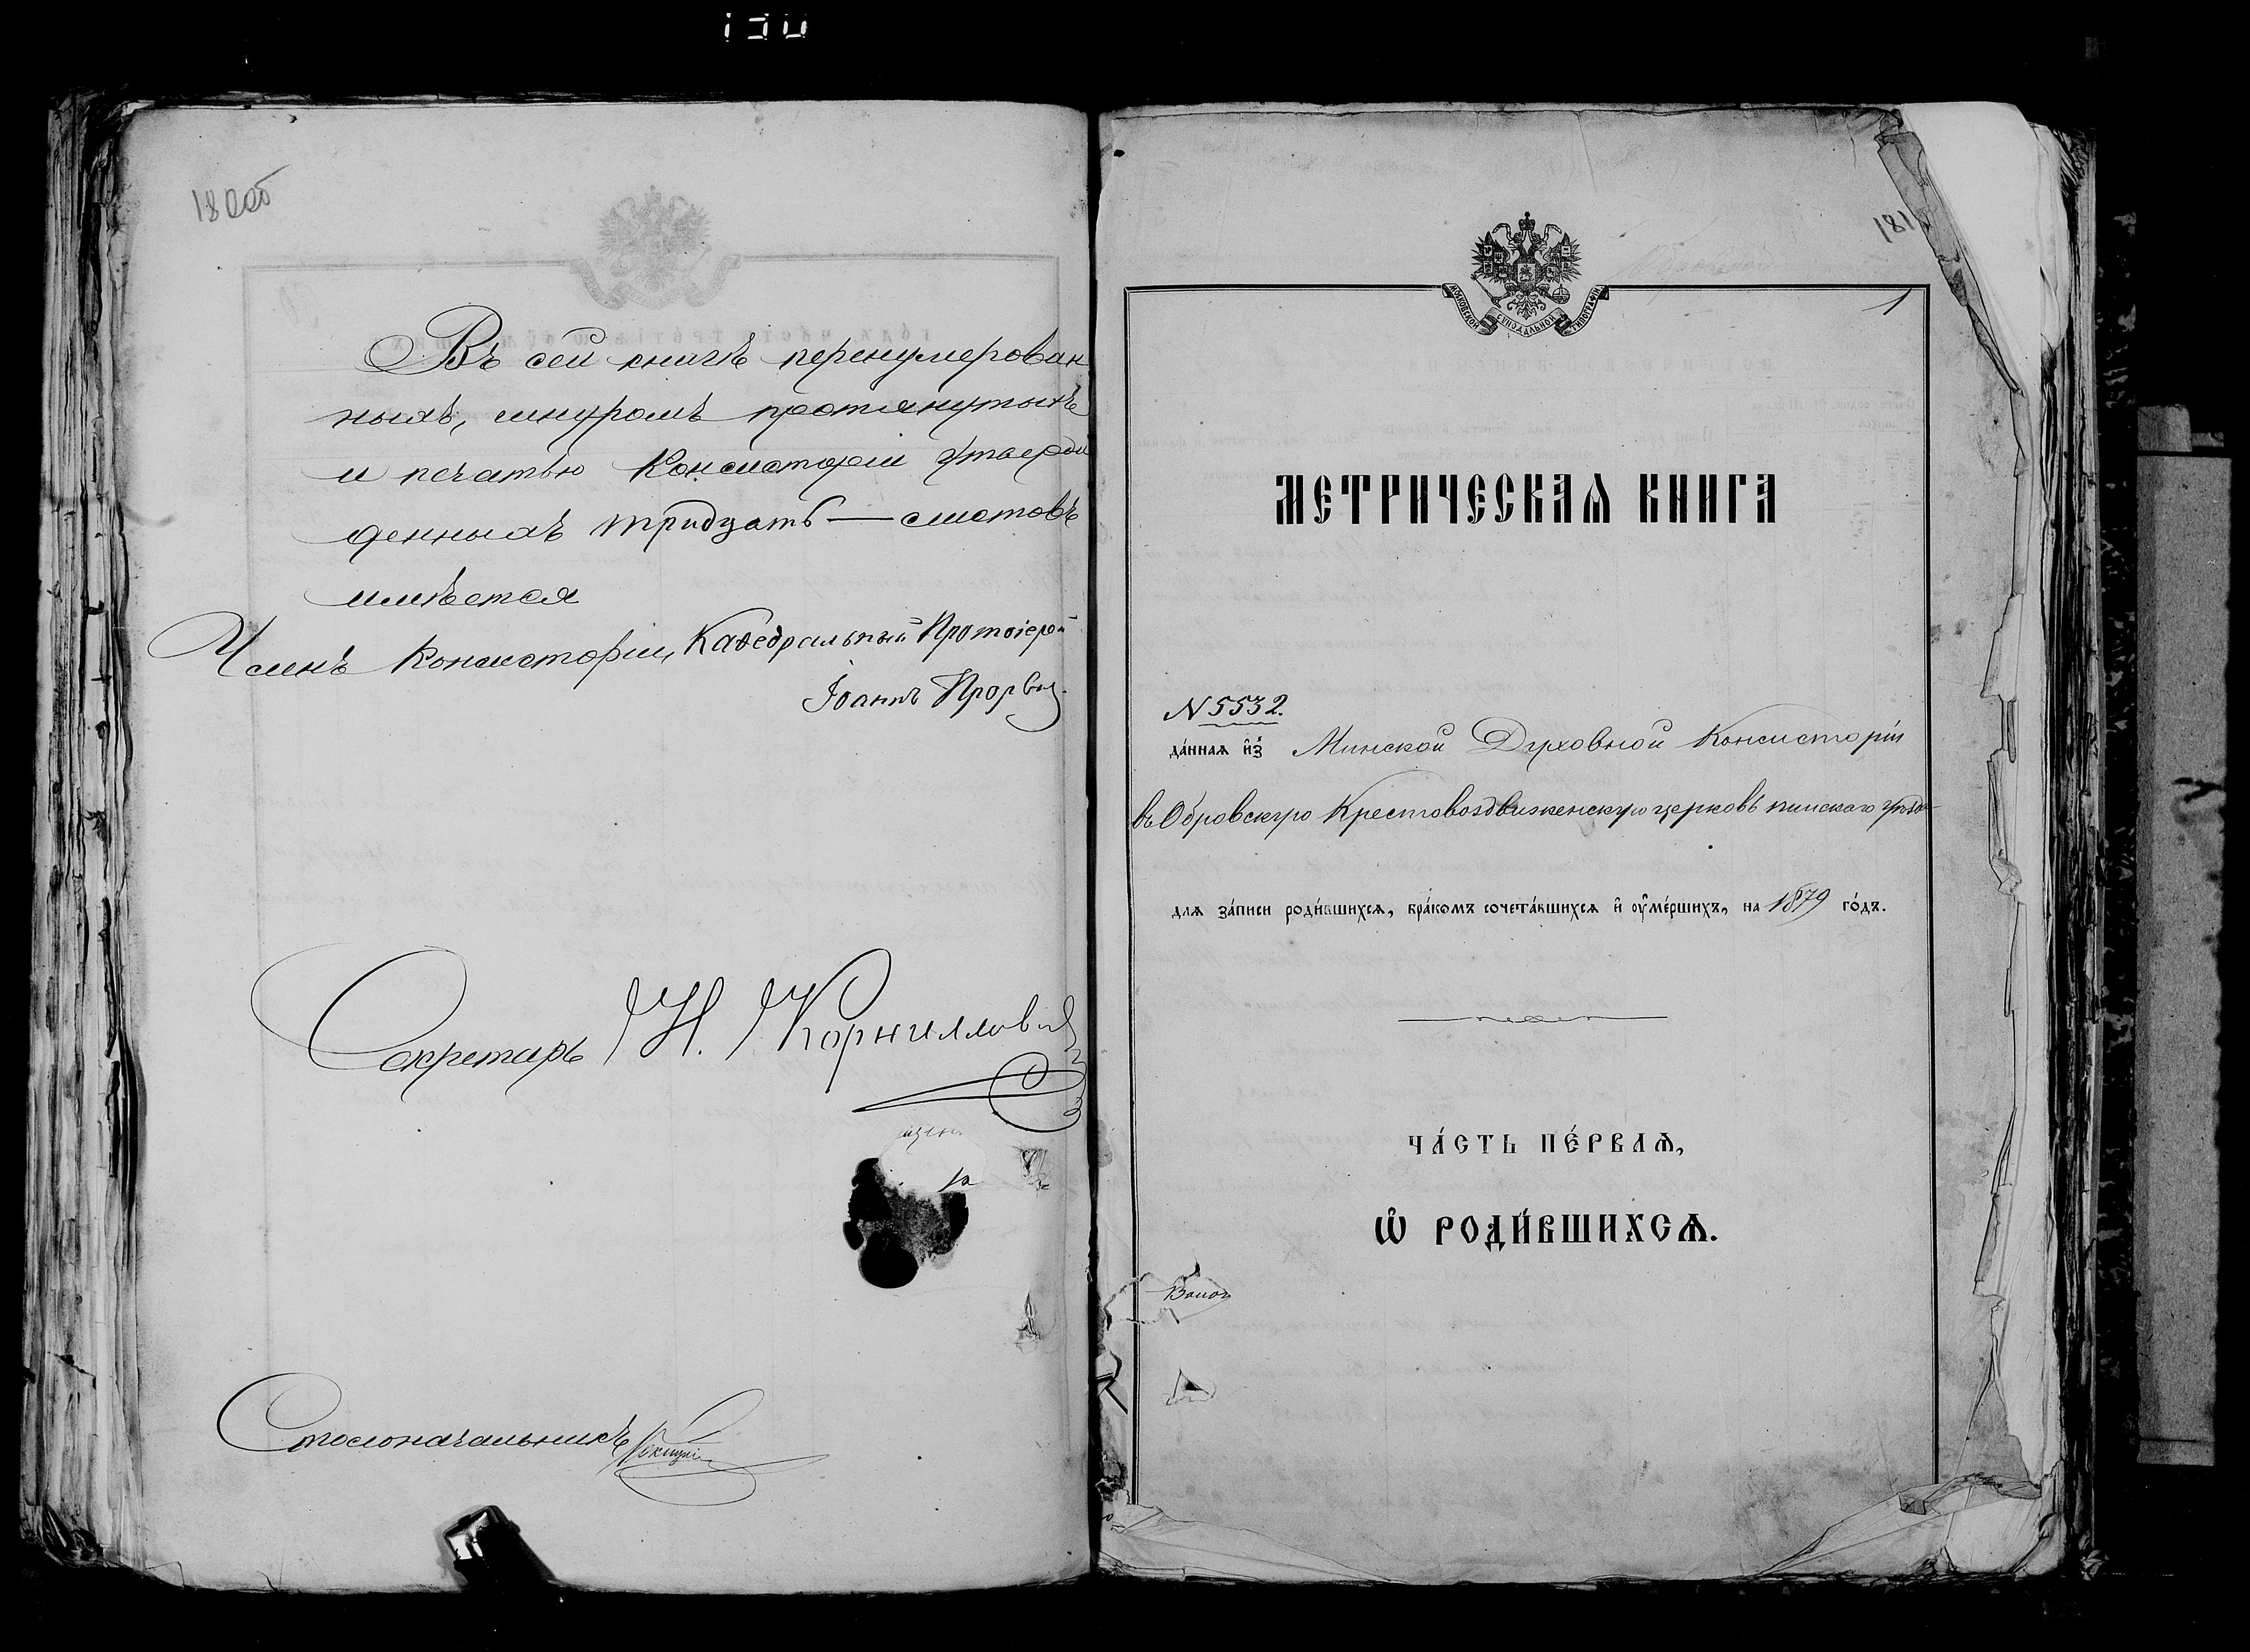 180об
Въ сей книгѣ перенумерован
ныхъ, шнуромъ протянутыхъ
и печатью Консисторіи утверж
денныхъ тридцать — листовъ
имѣется
Членъ Консисторіи, Каѳедральный Протоіерей
Іоаннъ
Секретарь Н. Корниллович
Столоначальникъ
181
1
МОСКОВСКОЙ СѴНОДАЛЬНОЙ ТИПОГРАФІИ
МЕТРИЧЕСКАѦ КНИГА
N 5532.
да́ннаѧ и҆з̾ Минской Духовной Консисторіи
въ Обровскую Крестовоздвиженскую церковь пинскаго уѣзда
длѧ за́писи роди́вшихсѧ, бра́комъ сочета́вшихсѧ и҆ ᲂу҆ме́ршихъ, на 1879 го́дъ.
ЧА́СТЬ ПЕ́РВАѦ,
Ѡ҆ РОДИ́ВШИХСѦ.